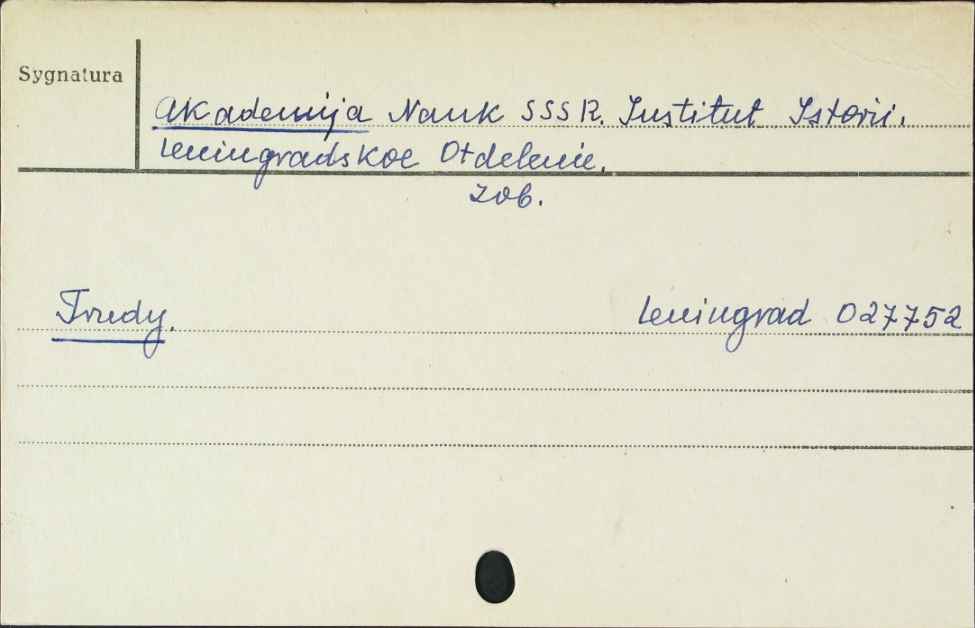 Sygnatura
Akademija Nauk SSSR. Institut Istorii.
Leningradskoe Otdelenie.
Zob.
Trudy. Leningrad 027752